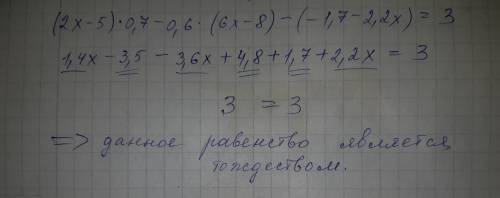 (2x-5)·0,7-0,6·(6x-8)-(-1,7-2,2x)=3
1,4x-3,5-3,6x+4,8+1,7+2,2x=3
3=3
=> данное равенство является
тождеством.